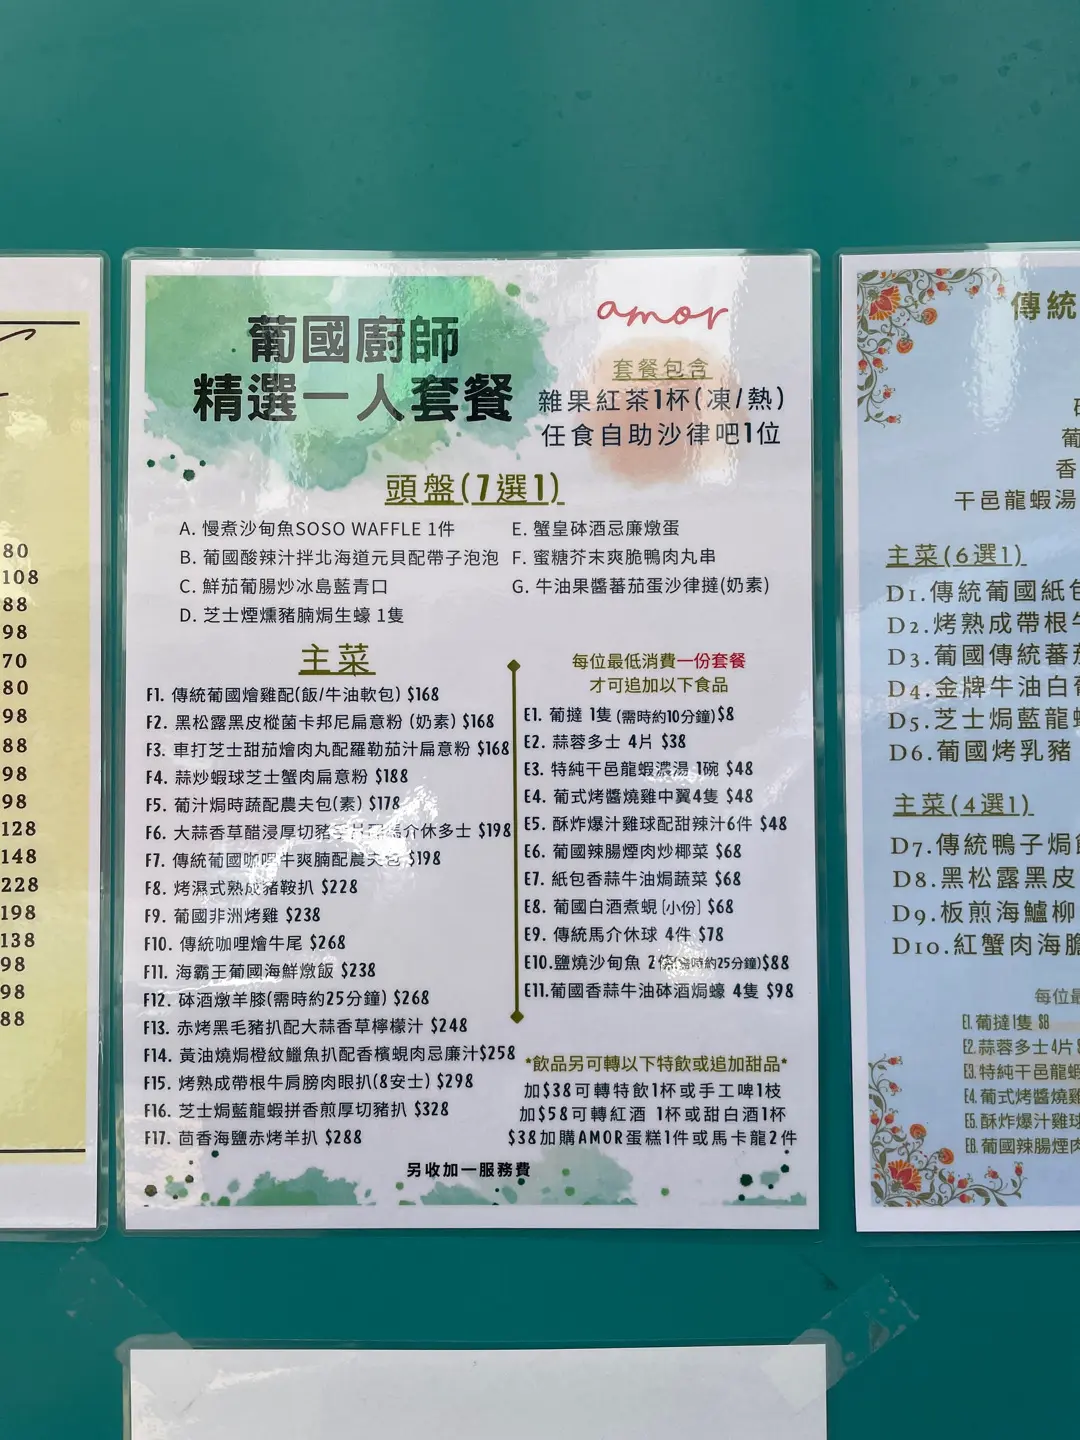 80
108
88
98
70
80
98
88
98
98
128
148
228
198
138
98
98
88
葡國廚師
精選一人套餐
amor
套餐包含
雜果紅茶1杯(凍/熱)
任食自助沙律吧1位
頭盤(7選1)
A. 慢煮沙甸魚SOSO WAFFLE 1件
B. 葡國酸辣汁拌北海道元貝配帶子泡泡
C. 鮮茄葡腸炒冰島藍青口
D. 芝士煙燻豬腩焗生蠔 1隻
E. 蟹皇砵酒忌廉燉蛋
F. 蜜糖芥末爽脆鴨肉丸串
G. 牛油果醬蕃茄蛋沙律撻(奶素)
主菜
F1. 傳統葡國燴雞配(飯/牛油軟包) $168
F2. 黑松露黑皮樅菌卡邦尼扁意粉 (奶素) $168
F3. 車打芝士甜茄燴肉丸配羅勒茄汁扁意粉 $168
F4. 蒜炒蝦球芝士蟹肉扁意粉 $188
F5. 葡汁焗時蔬配農夫包(素) $178
F6. 大蒜香草醋浸厚切豬 介休多士 $198
F7. 傳統葡國咖哩牛爽腩配農夫包 $198
F8. 烤濕式熟成豬鞍扒 $228
F9. 葡國非洲烤雞 $238
F10. 傳統咖哩燴牛尾 $268
F11. 海霸王葡國海鮮燉飯 $238
F12. 砵酒燉羊膝(需時約25分鐘) $268
F13. 赤烤黑毛豬扒配大蒜香草檸檬汁 $248
F14. 黃油燒焗橙紋鱲魚扒配香檳蜆肉忌廉汁$258
F15. 烤熟成帶根牛肩膀肉眼扒(8安士) $298
F16. 芝士焗藍龍蝦拼香煎厚切豬扒 $328
F17. 茴香海鹽赤烤羊扒 $288
每位最低消費一份套餐
才可追加以下食品
E1. 葡撻 1隻 (需時約10分鐘)$8
E2. 蒜蓉多士 4片 $38
E3. 特純干邑龍蝦濃湯 1碗 $48
E4. 葡式烤醬燒雞中翼4隻 $48
E5. 酥炸爆汁雞球配甜辣汁6件 $48
E6. 葡國辣腸煙肉炒椰菜 $68
E7. 紙包香蒜牛油焗蔬菜 $68
E8. 葡國白酒煮蜆 (小份) $68
E9. 傳統馬介休球 4件 $78
E10.鹽燒沙甸魚 2條(需時約25分鐘)$88
E11.葡國香蒜牛油砵酒焗蠔 4隻 $98
*飲品另可轉以下特飲或追加甜品*
加$38可轉特飲1杯或手工啤1枝
加$58可轉紅酒 1杯或甜白酒1杯
$38加購AMOR蛋糕1件或馬卡龍2件
另收加一服務費
傳統
葡
香
干邑龍蝦湯
主菜(6選1)
D1.傳統葡國紙包
D2.烤熟成帶根牛
D3.葡國傳統蕃茄
D4.金牌牛油白葡
D5.芝士焗藍龍蝦
D6.葡國烤乳豬
主菜(4選1)
D7.傳統鴨子焗飯
D8.黑松露黑皮
D9.板煎海鱸柳
D10.紅蟹肉海膽
每位最
E1.葡撻1隻 $8
E2.蒜蓉多士4片
E3.特純干邑龍蝦
E4.葡式烤醬燒雞
E5.酥炸爆汁雞球
E6.葡國辣腸煙肉